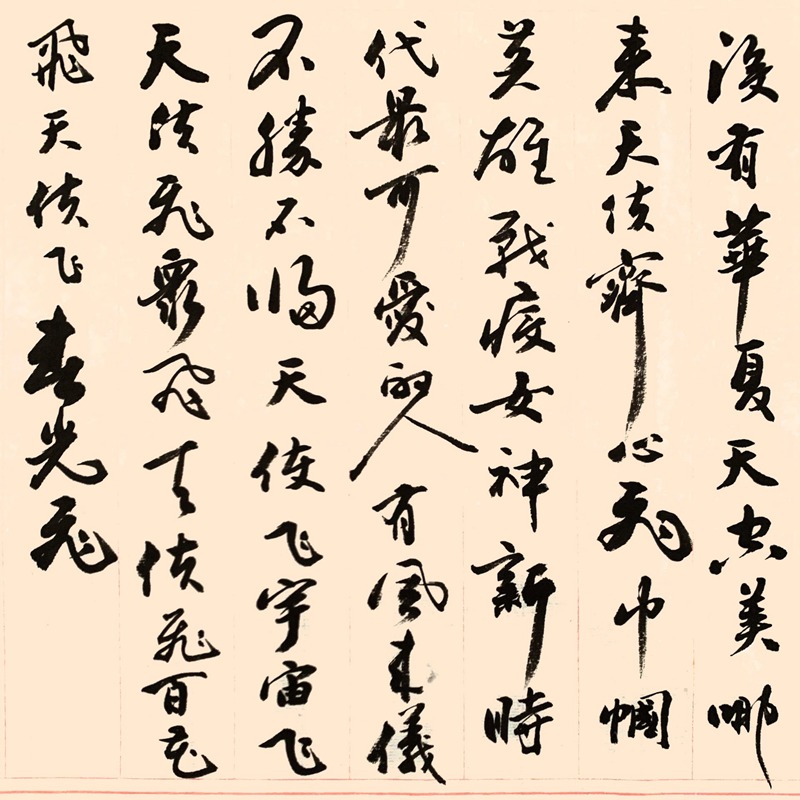 没有華夏天空美哪
来天使齊心飛巾幗
英雄戰疫女神新時
代最可愛的人有風来儀
不勝不歸天使飞宇宙飞
天使飛眾飛天使飛百花
飛天使飞春光飛